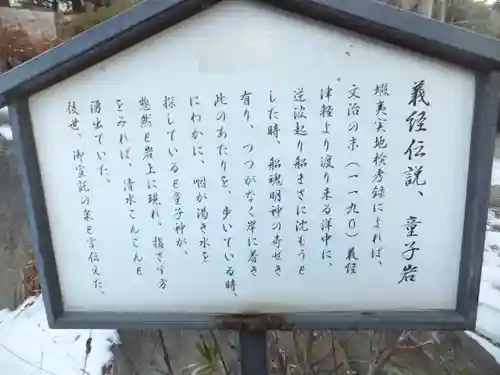 義経伝説、童子岩
蝦夷実地検考録によれば、
文治の末(一一九〇)義経
津軽より渡り来る洋中に、
逆波起り船まさに沈もうと
した時、船魂明神の奇せき
有り、つつがなく岸に着き
此のあたりを、歩いている時、
にわかに、咽が渇き水を
探していると童子神が、
忽然と岩上に現れ、指さす方
をみれば、清水こんこんと
湧出ていた。
後世、御宣託の泉と言伝えた。